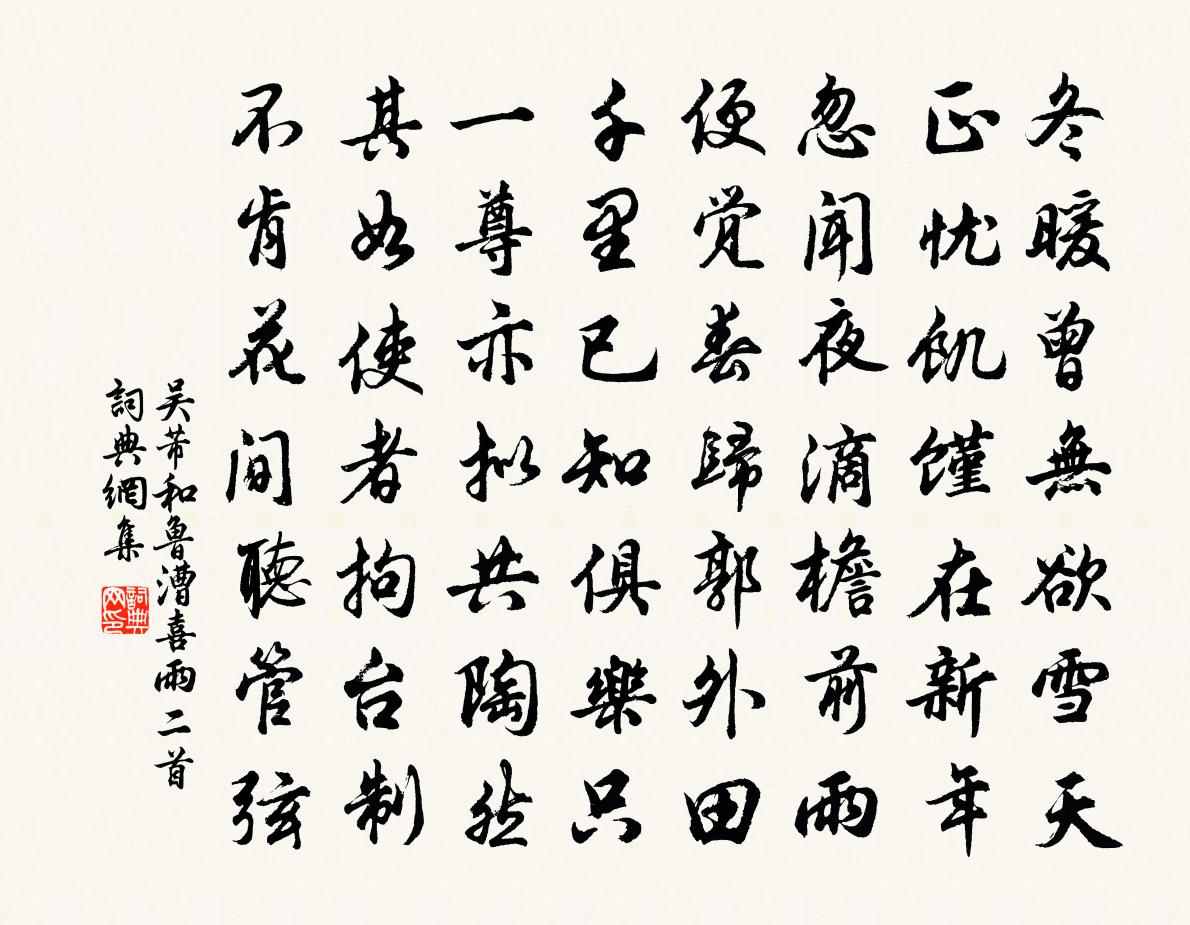 冬暖曾無欲雪天
正忧飢馑在新年
忽闻夜滴檐前雨
便觉春歸郭外田
千里已知俱樂只
一尊亦拟共陶然
其如使者拘台制
不肯花间聽管弦
吴芾和鲁漕喜雨二首
詞典網集
詞典网印